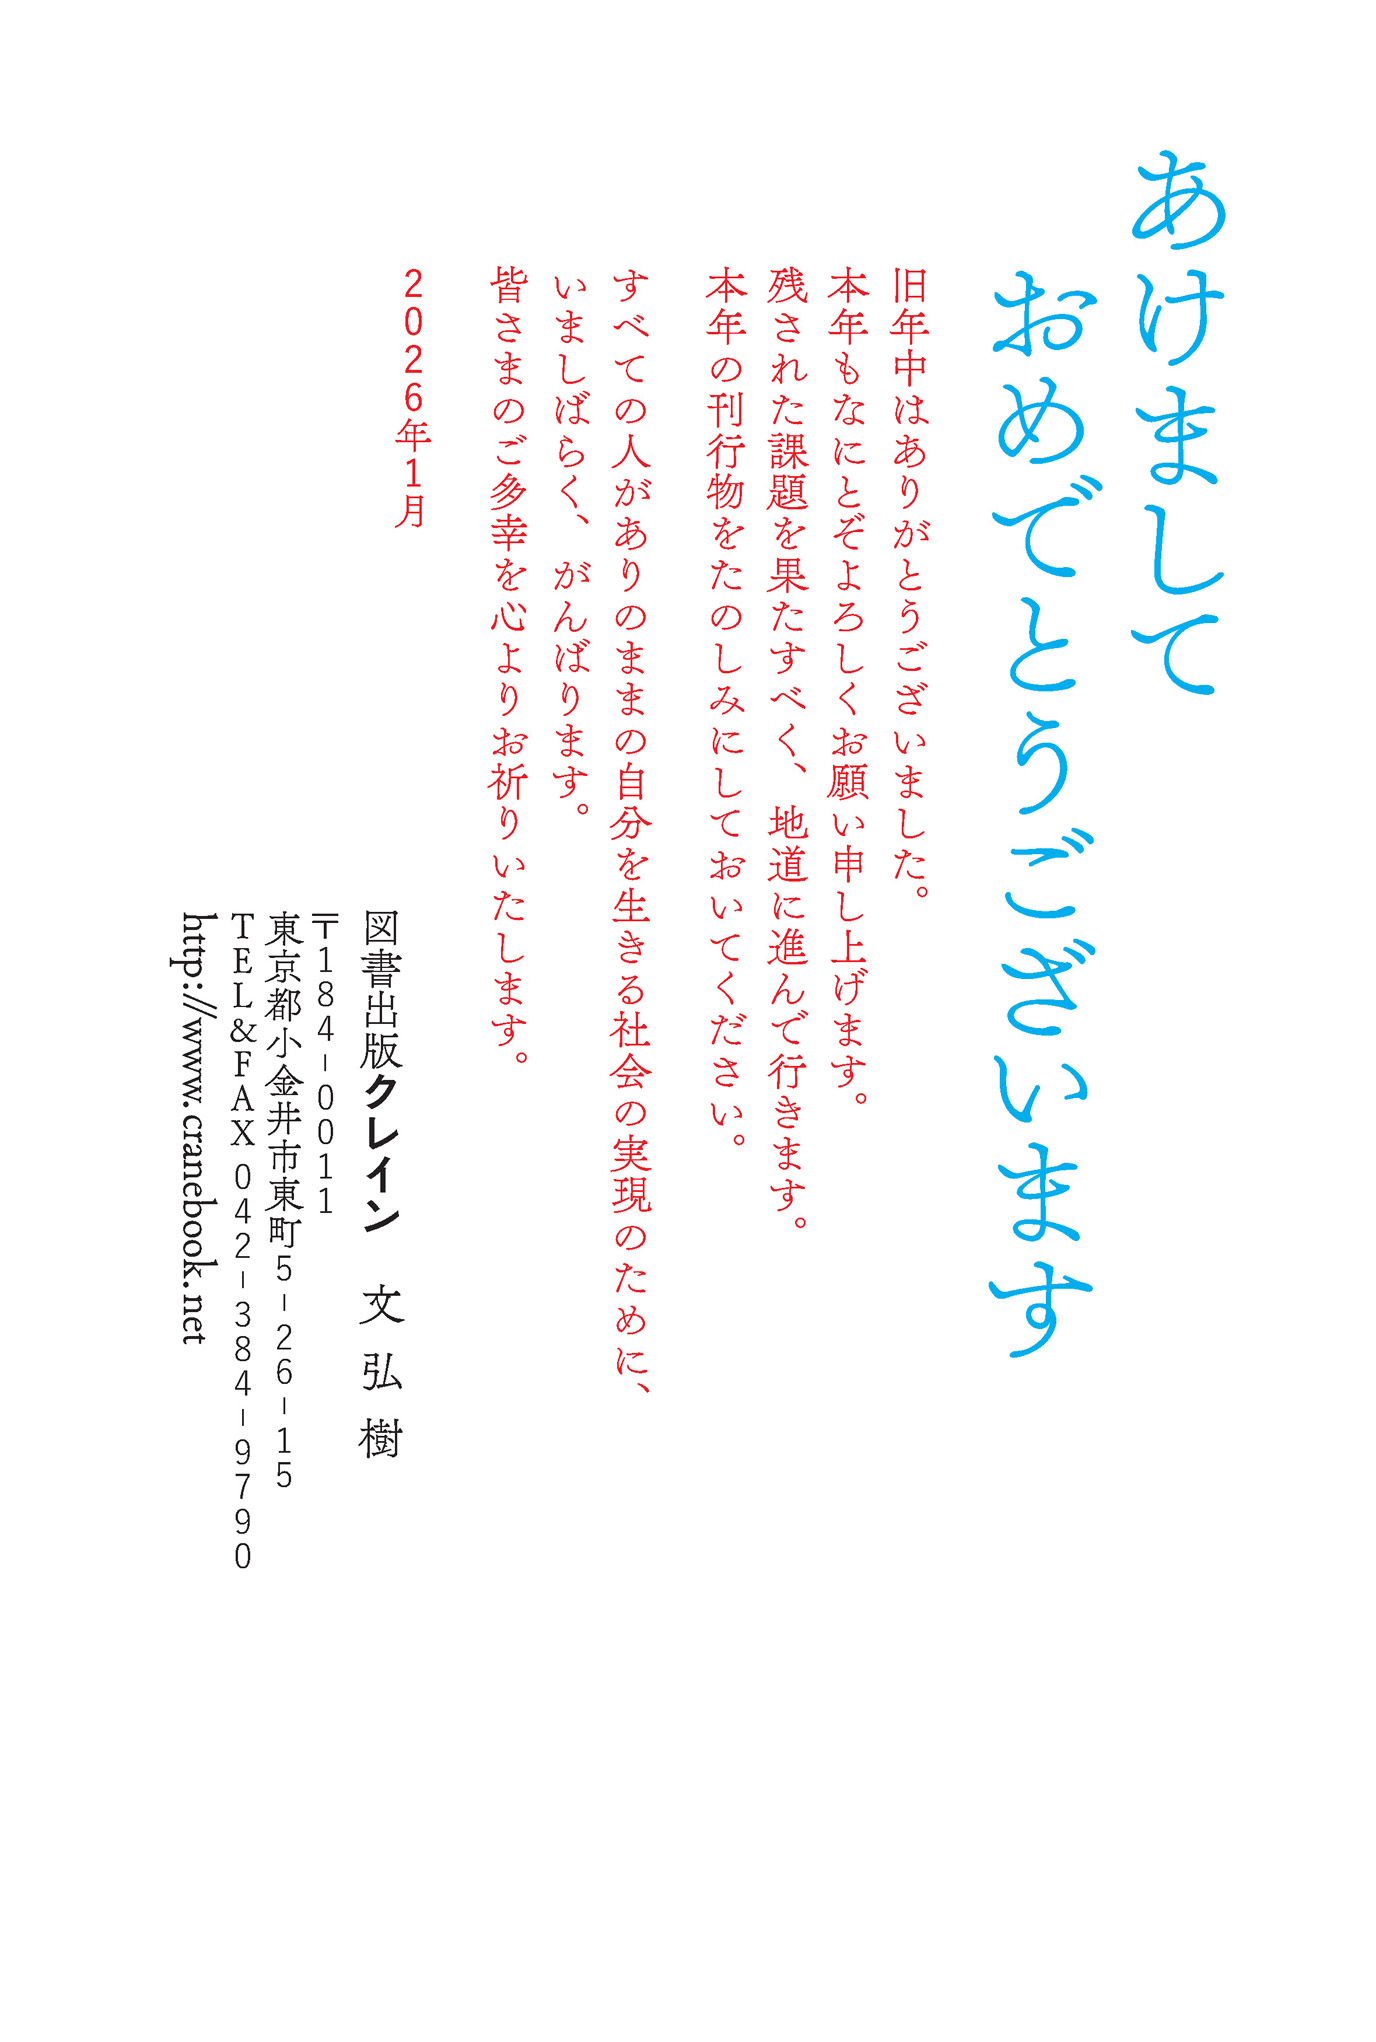 あけまして
おめでとうございます
旧年中はありがとうございました。
本年もなにとぞよろしくお願い申し上げます。
残された課題を果たすべく、地道に進んで行きます。
本年の刊行物をたのしみにしておいてください。
すべての人がありのままの自分を生きる社会の実現のために、
いましばらく、がんばります。
皆さまのご多幸を心よりお祈りいたします。
2026年1月
図書出版クレイン　文 弘 樹
〒184-0011
東京都小金井市東町5-26-15
TEL&FAX 042-384-9790
http://www.cranebook.net